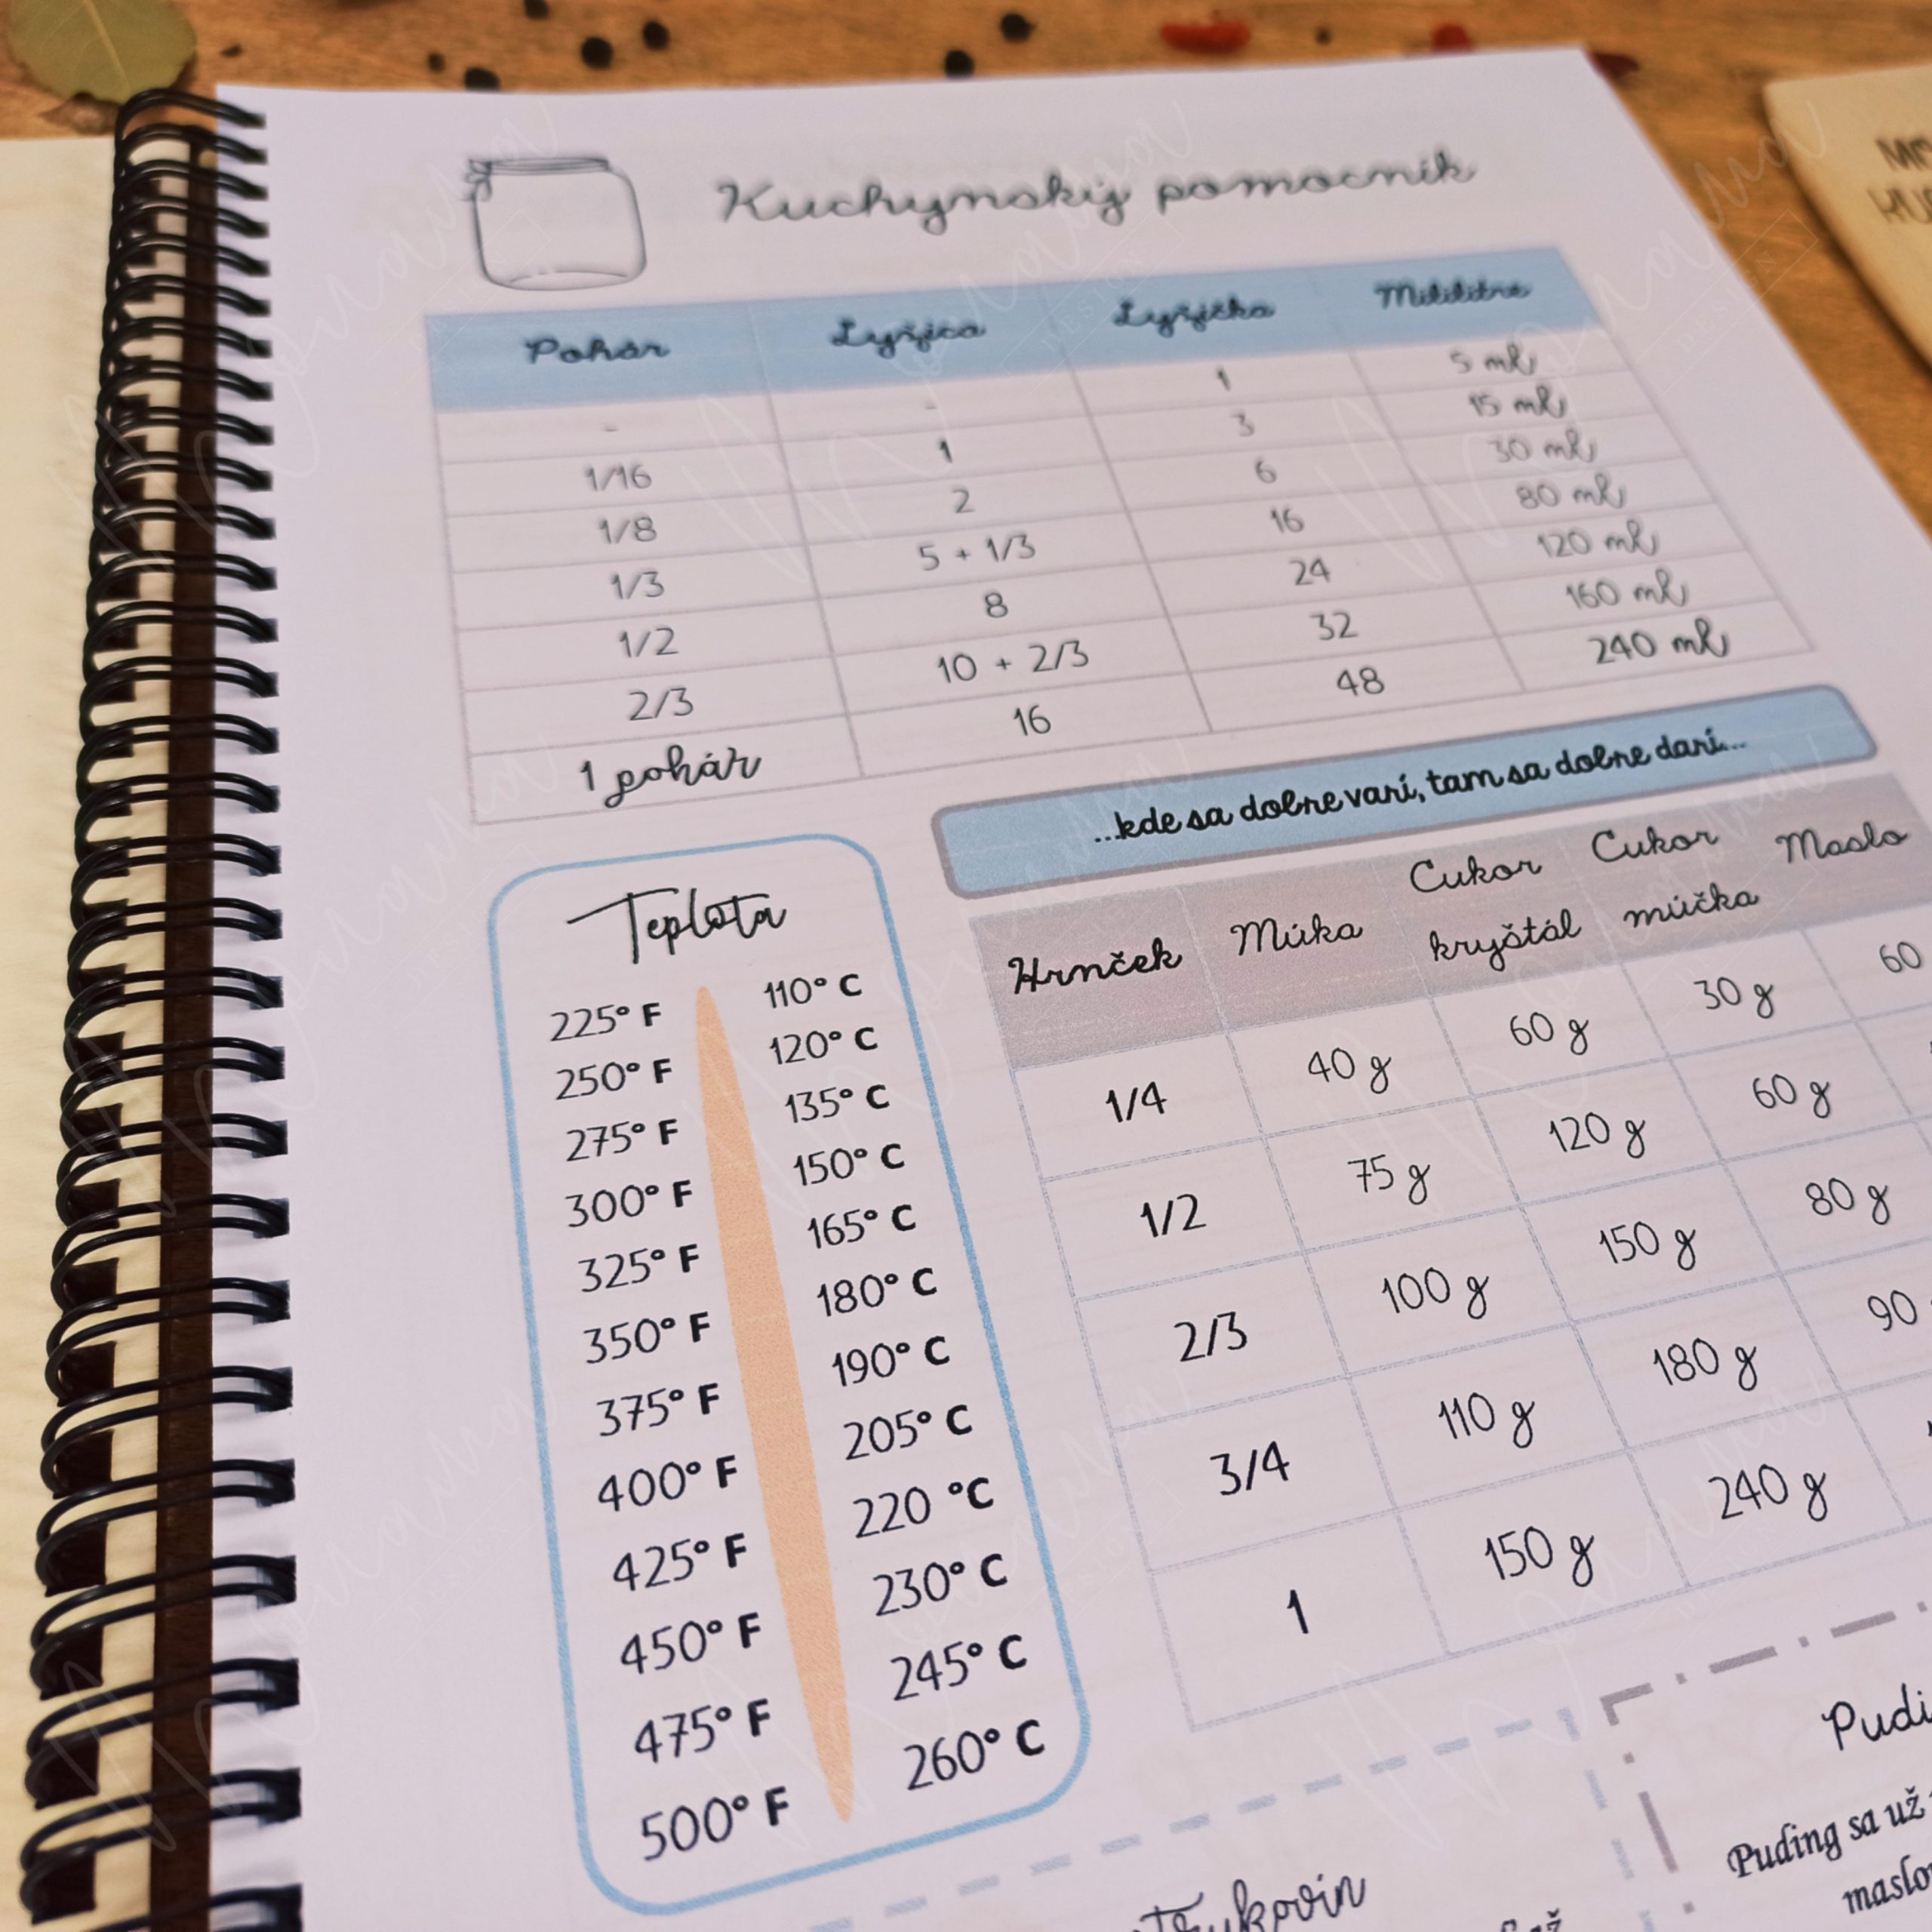 Kuchynský pomocník
Pohár Lyžica Lyžička Mililitre
- - 1 5 ml
1/16 1 3 15 ml
1/8 2 6 30 ml
1/3 5 + 1/3 16 80 ml
1/2 8 24 120 ml
2/3 10 + 2/3 32 160 ml
1 pohár 16 48 240 ml
...kde sa dobre varí, tam sa dobre darí...
Teplota
225° F 110° C
250° F 120° C
275° F 135° C
300° F 150° C
325° F 165° C
350° F 180° C
375° F 190° C
400° F 205° C
425° F 220 °C
450° F 230° C
475° F 245° C
500° F 260° C
Hrnček Múka Cukor kryštál Cukor múčka Maslo
1/4 40 g 60 g 30 g 60
1/2 75 g 120 g 60 g
2/3 100 g 150 g 80 g
3/4 110 g 180 g 90
1 150 g 240 g
Puding sa už
DESIGN